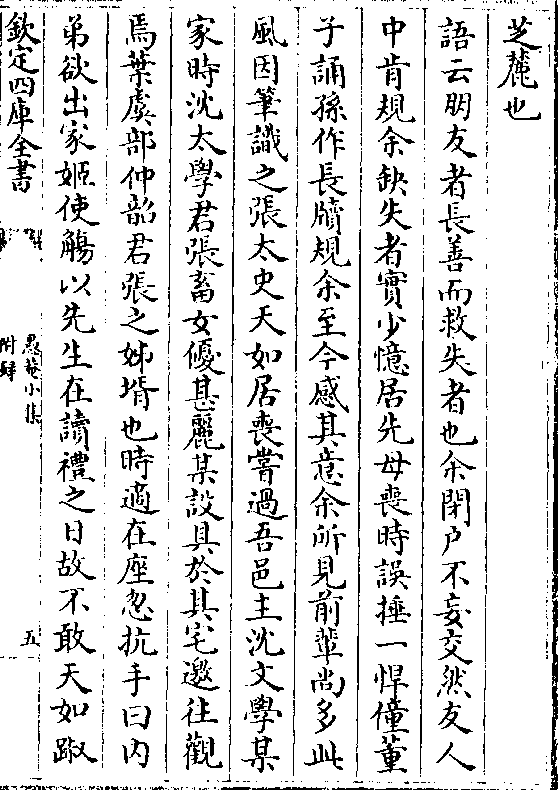 芝麓也
語云朋友者長善而救失者也余閉户不妄交然友人
中肯規余缺失者實少憶居先母喪時誤捶一悍僮董
子誦孫作長牘規余至今感其意余所見前輩尚多此
風因筆識之張太史天如居喪嘗過吾邑主沈文學某
家時沈太學君張畜女優甚麗某設具於其宅邀往觀
焉葉虞部仲韶君張之姊壻也時適在座忽抗手曰内
弟欲出家姬使觴以先生在讀禮之日故不敢天如踧
欽定四庫全書
愚菴小集
附録
五